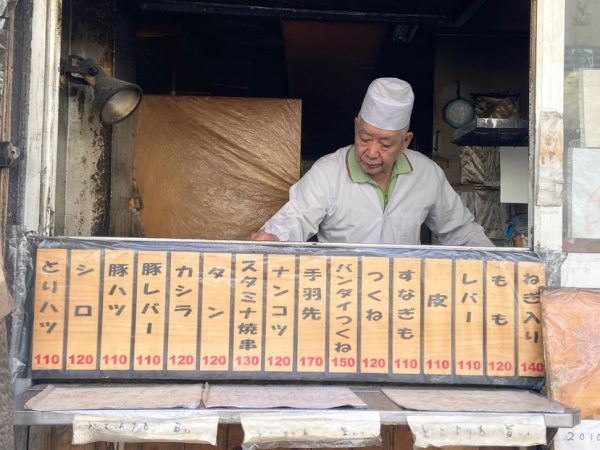 ねぎ入り 140
もも 120
レバー 110
皮 110
すなぎも 110
つくね 120
バンダイつくね 150
手羽先 170
ナンコツ 120
スタミナ焼串 130
タン 120
カシラ 120
豚レバー 110
豚ハツ 110
シロ 120
とりハツ 110
2010